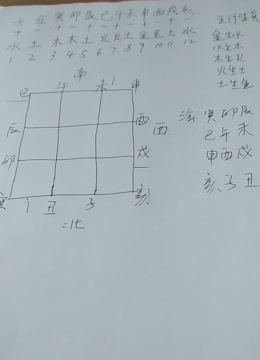 子 丑 寅 卯 辰 巳 午 未 申 酉 戌 亥
十 一 十 一 十 一 十 一 十 一 十 一
水 土 木 木 土 火 火 土 金 金 土 水
1 2 3 4 5 6 7 8 9 10 11 12
五行生克
金生水
水生木
木生火
火生土
土生金
南
巳 午 未 申
辰 酉 西
卯 戌
寅 丑 子 亥
北
寅卯辰
巳午未
申酉戌
亥子丑